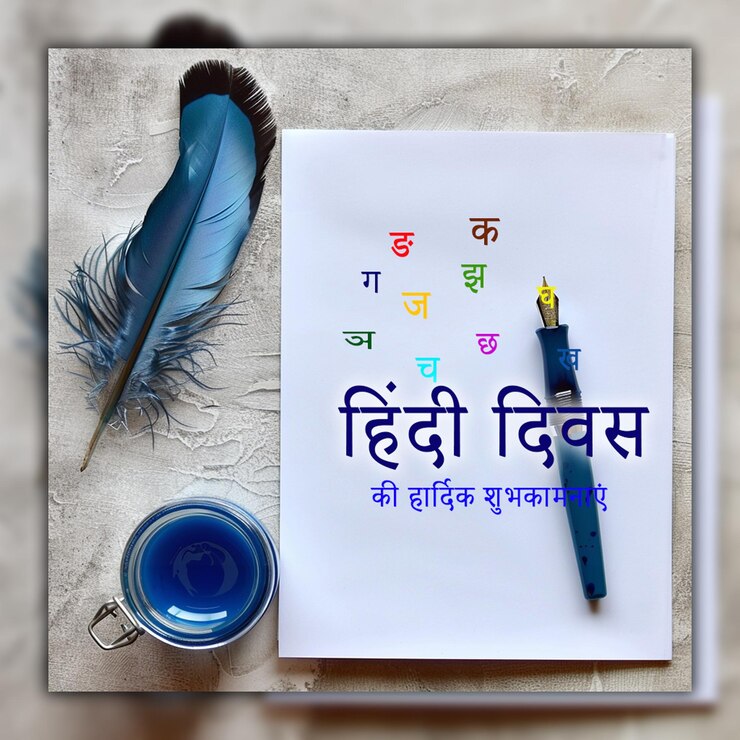 ङ क
ग ज झ घ
ञ च छ ख
हिंदी दिवस
की हार्दिक शुभकामनाएं